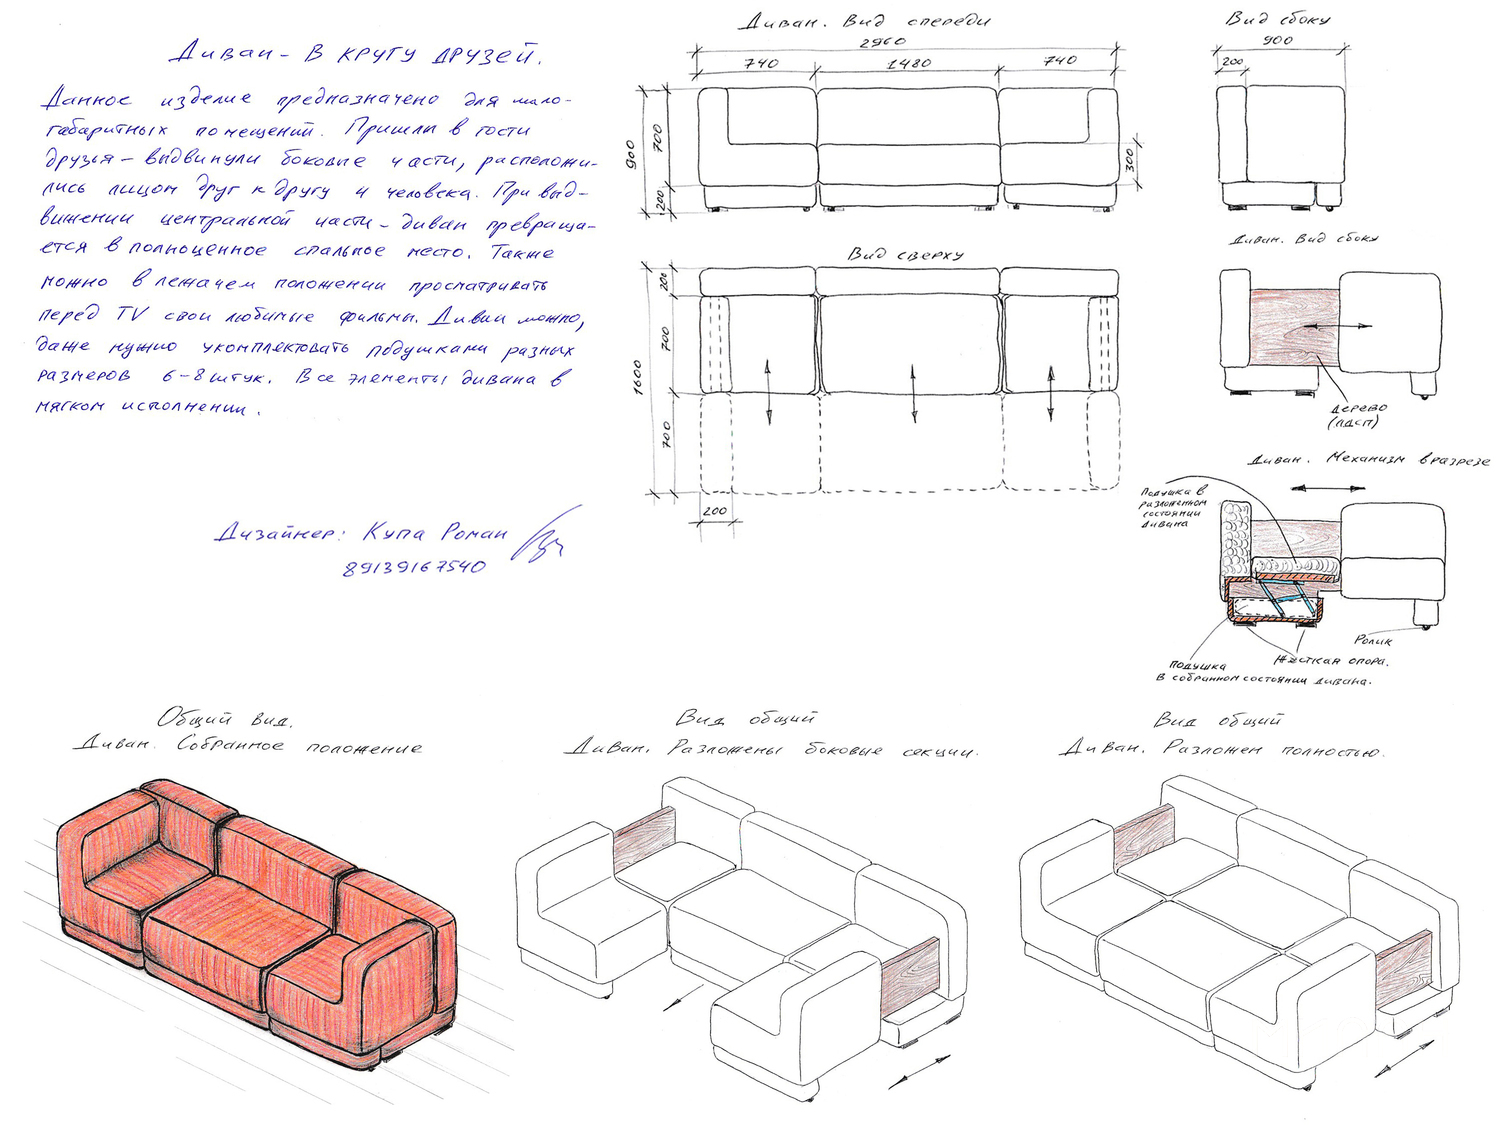 Диван - В кругу друзей.
Данное изделие предназначено для мало-
габаритных помещений. Пришли в гости
друзья - выдвинули боковые части, расположи-
лись лицом друг к другу 4 человека. При выд-
вижении центральной части - диван превраща-
ется в полноценное спальное место. Также
можно в лежачем положении просматривать
перед TV свои любимые фильмы. Диван можно,
даже нужно укомплектовать подушками разных
размеров 6-8 штук. Все элементы дивана в
мягком исполнении.
Дизайнер: Купа Роман
89139167540
Диван. Вид спереди
2960
740 1480 740
900
700
200
300
Вид сбоку
900
200
Вид сверху
200
700
1600
700
200
Диван. Вид сбоку
дерево
(лдсп)
Диван. Механизм в разрезе
Подушка в
разложенном
состоянии
дивана
Ролик
Жёсткая опора.
Подушка
в собранном состоянии дивана.
Общий вид.
Диван. Собранное положение
Вид общий
Диван. Разложены боковые секции.
Вид общий
Диван. Разложен полностью.